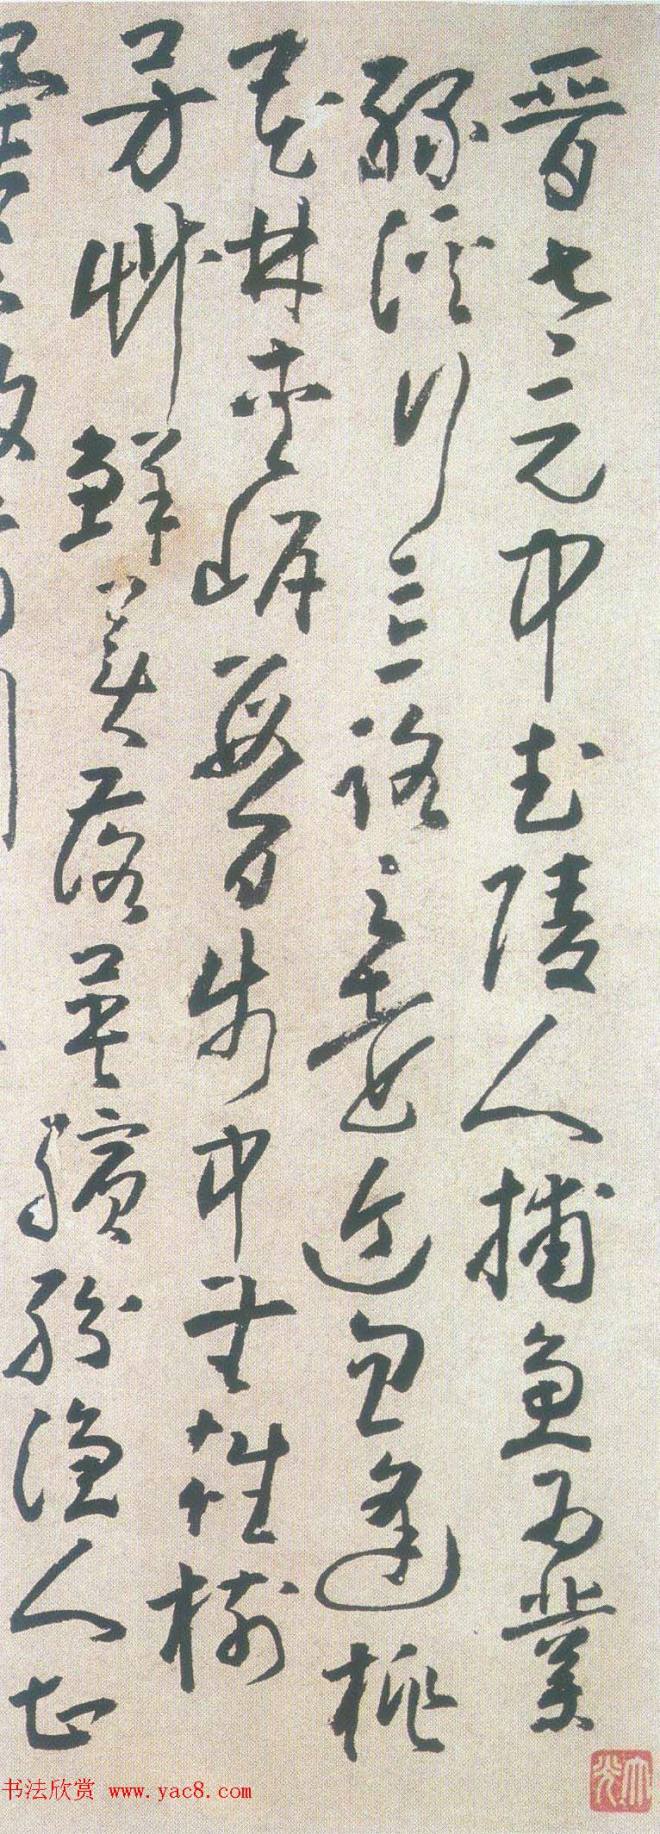 晉太元中武陵人捕魚為業
緣溪行忘路之遠近忽逢桃
花林夾岸數百步中無雜樹
芳草鮮美落英繽紛漁人甚
书法欣赏 www.yac8.com